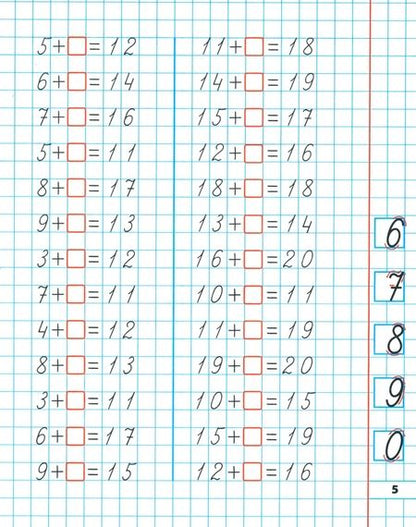 5+□=12
6+□=14
7+□=16
5+□=11
8+□=17
9+□=13
3+□=12
7+□=11
4+□=12
8+□=13
3+□=11
6+□=17
9+□=15
11+□=18
14+□=19
15+□=17
12+□=16
18+□=18
13+□=14
16+□=20
10+□=11
11+□=19
19+□=20
10+□=15
15+□=19
12+□=16
6
7
8
9
0
5